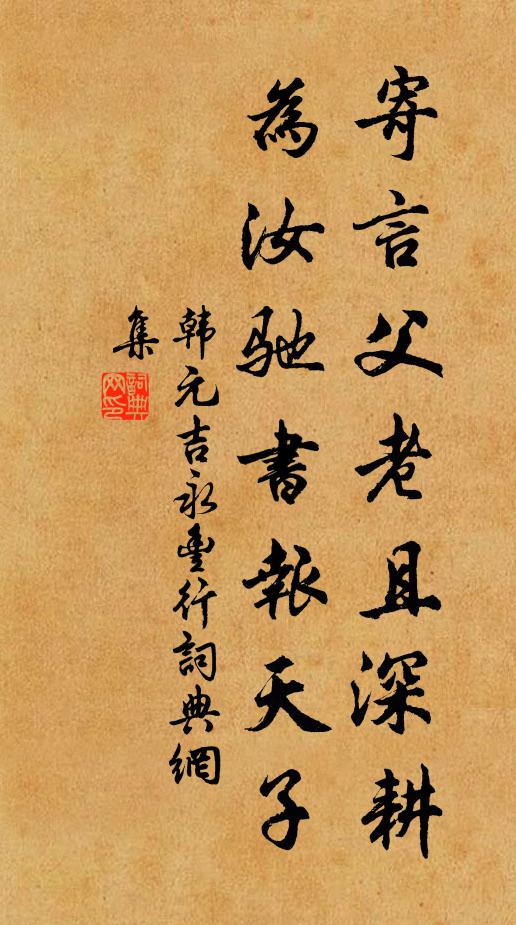 寄言父老且深耕
為汝馳書報天子
韩元吉永豐行詞典網
集
詞典
网印